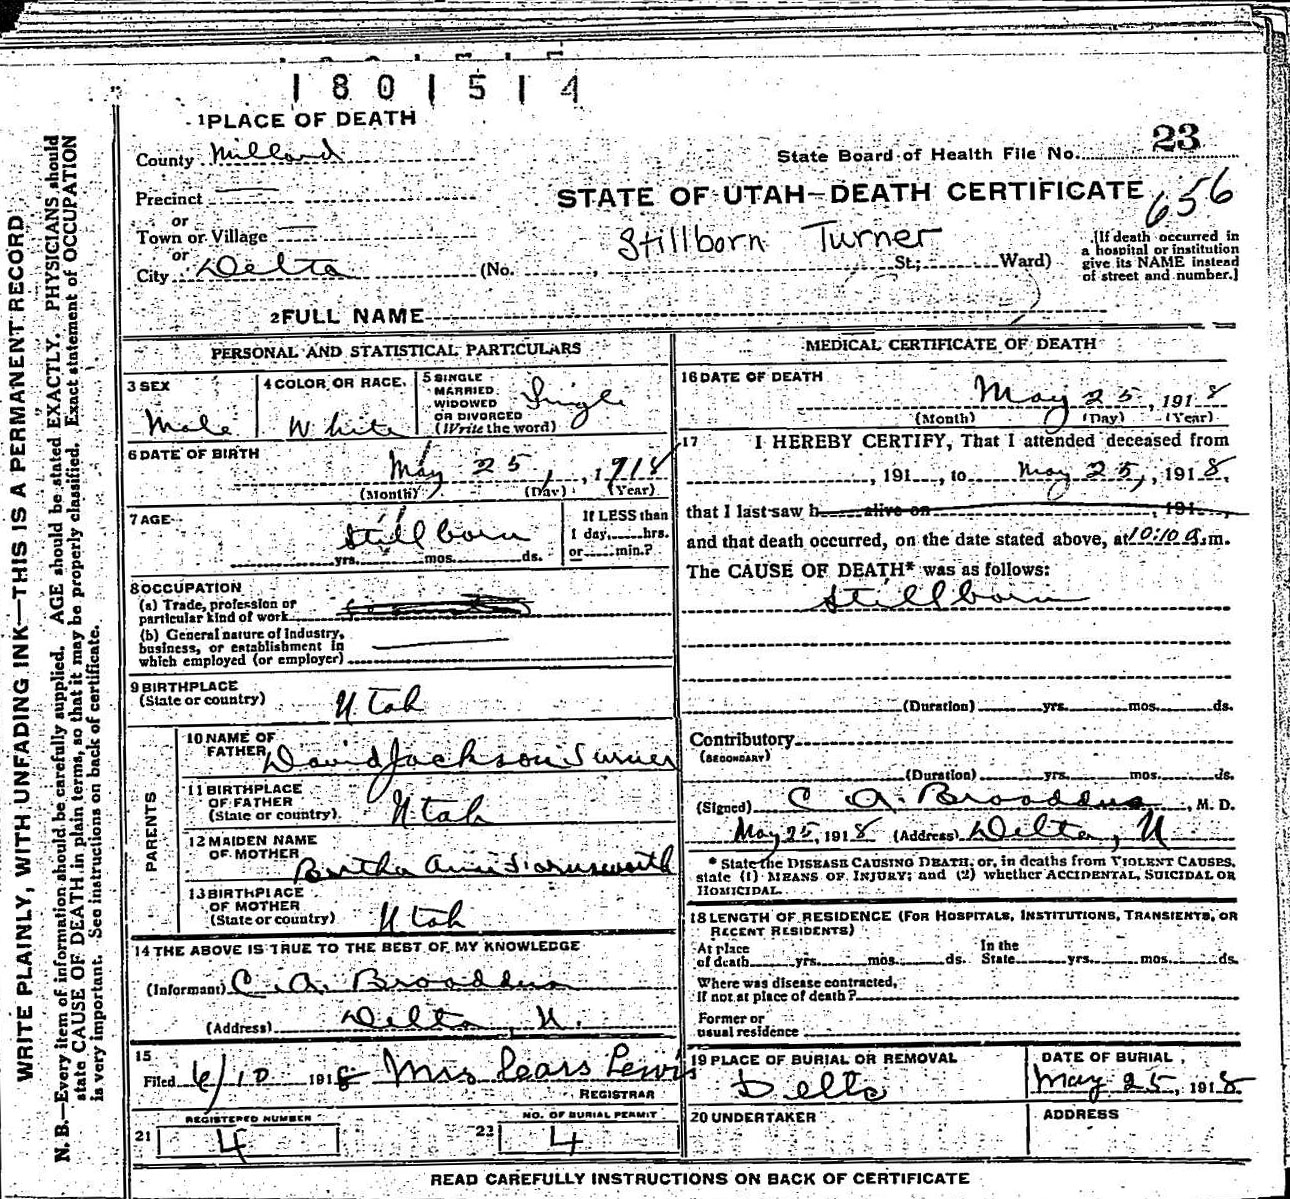 1801514
1 PLACE OF DEATH
County Millard
State Board of Health File No. 23
Precinct
STATE OF UTAH—DEATH CERTIFICATE
656
or
Town or Village
or
City Delta (No. , St.; Ward)
Stillborn Turner
[If death occurred in
a hospital or institution
give its NAME instead
of street and number.]
2 FULL NAME
PERSONAL AND STATISTICAL PARTICULARS
3 SEX
Male
4 COLOR OR RACE.
White
5 SINGLE
MARRIED
WIDOWED
OR DIVORCED
(Write the word)
Single
6 DATE OF BIRTH
May 25, 1918
(Month) (Day) (Year)
7 AGE
Stillborn
yrs. mos. ds.
If LESS than
1 day, hrs.
or min.?
8 OCCUPATION
(a) Trade, profession or
particular kind of work
(b) General nature of Industry,
business, or establishment in
which employed (or employer)
9 BIRTHPLACE
(State or country)
Utah
PARENTS
10 NAME OF
FATHER
David Jackson Turner
11 BIRTHPLACE
OF FATHER
(State or country)
Utah
12 MAIDEN NAME
OF MOTHER
Bertha Ann Farnsworth
13 BIRTHPLACE
OF MOTHER
(State or country)
Utah
14 THE ABOVE IS TRUE TO THE BEST OF MY KNOWLEDGE
(Informant) C. A. Broaddus
(Address) Delta, U.
15
Filed 6/10 1918 Mrs Pears Lewis
REGISTRAR
REGISTERED NUMBER
21 4
NO. OF BURIAL PERMIT
22 4
MEDICAL CERTIFICATE OF DEATH
16 DATE OF DEATH
May 25, 1918
(Month) (Day) (Year)
17 I HEREBY CERTIFY, That I attended deceased from
, 191 , to May 25, 1918,
that I last saw h alive on , 191 ,
and that death occurred, on the date stated above, at 10:10 a.m.
The CAUSE OF DEATH* was as follows:
Stillborn
(Duration) yrs. mos. ds.
Contributory
(SECONDARY)
(Duration) yrs. mos. ds.
(Signed) C A. Broaddus, M. D.
May 25, 1918 (Address) Delta, U
* State the DISEASE CAUSING DEATH, or, in deaths from VIOLENT CAUSES,
state (1) MEANS OF INJURY; and (2) whether ACCIDENTAL, SUICIDAL OR
HOMICIDAL.
18 LENGTH OF RESIDENCE (FOR HOSPITALS, INSTITUTIONS, TRANSIENTS, OR
RECENT RESIDENTS)
At place
of death yrs. mos. ds.
In the
State yrs. mos. ds.
Where was disease contracted,
if not at place of death?
Former or
usual residence
19 PLACE OF BURIAL OR REMOVAL
Delta
DATE OF BURIAL
May 25, 1918
20 UNDERTAKER
ADDRESS
READ CAREFULLY INSTRUCTIONS ON BACK OF CERTIFICATE
WRITE PLAINLY, WITH UNFADING INK—THIS IS A PERMANENT RECORD
N. B.—Every item of information should be carefully supplied. AGE should be stated EXACTLY. PHYSICIANS should
state CAUSE OF DEATH in plain terms, so that it may be properly classified. Exact statement of OCCUPATION
is very important. See instructions on back of certificate.